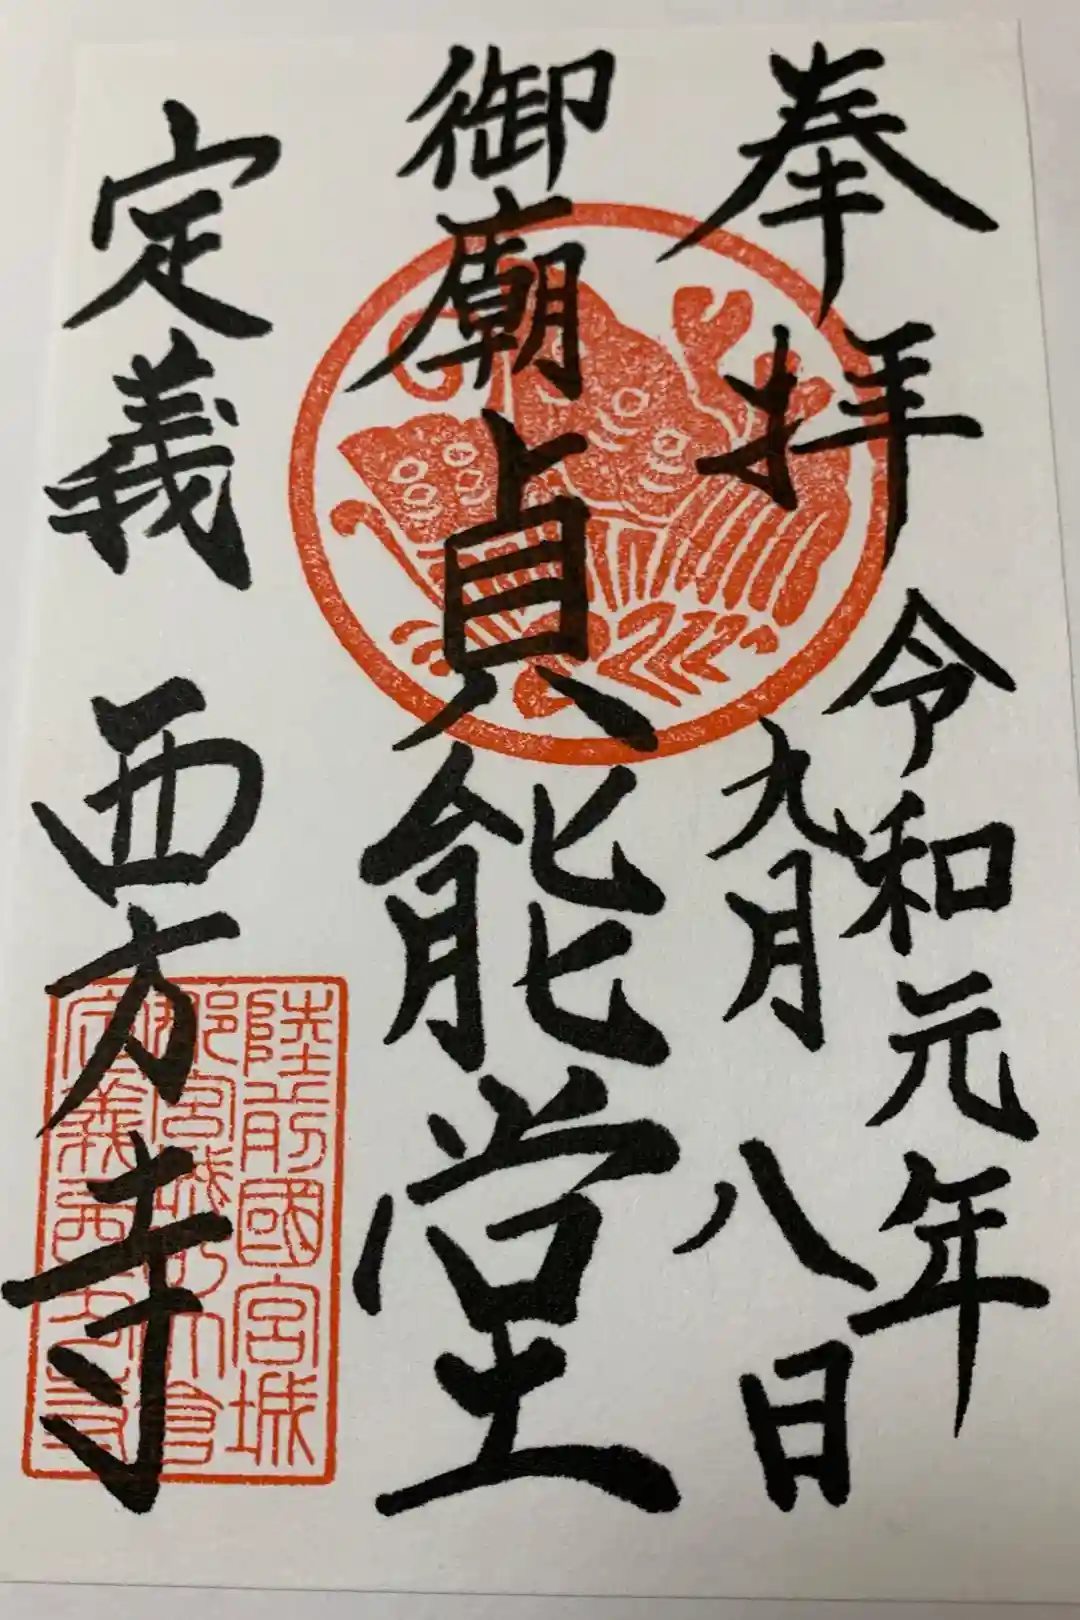 奉拝
令和元年
九月八日
御廟貞能堂
定義 西方寺
陸前國宮城
郡宮城町大倉
定義西方寺